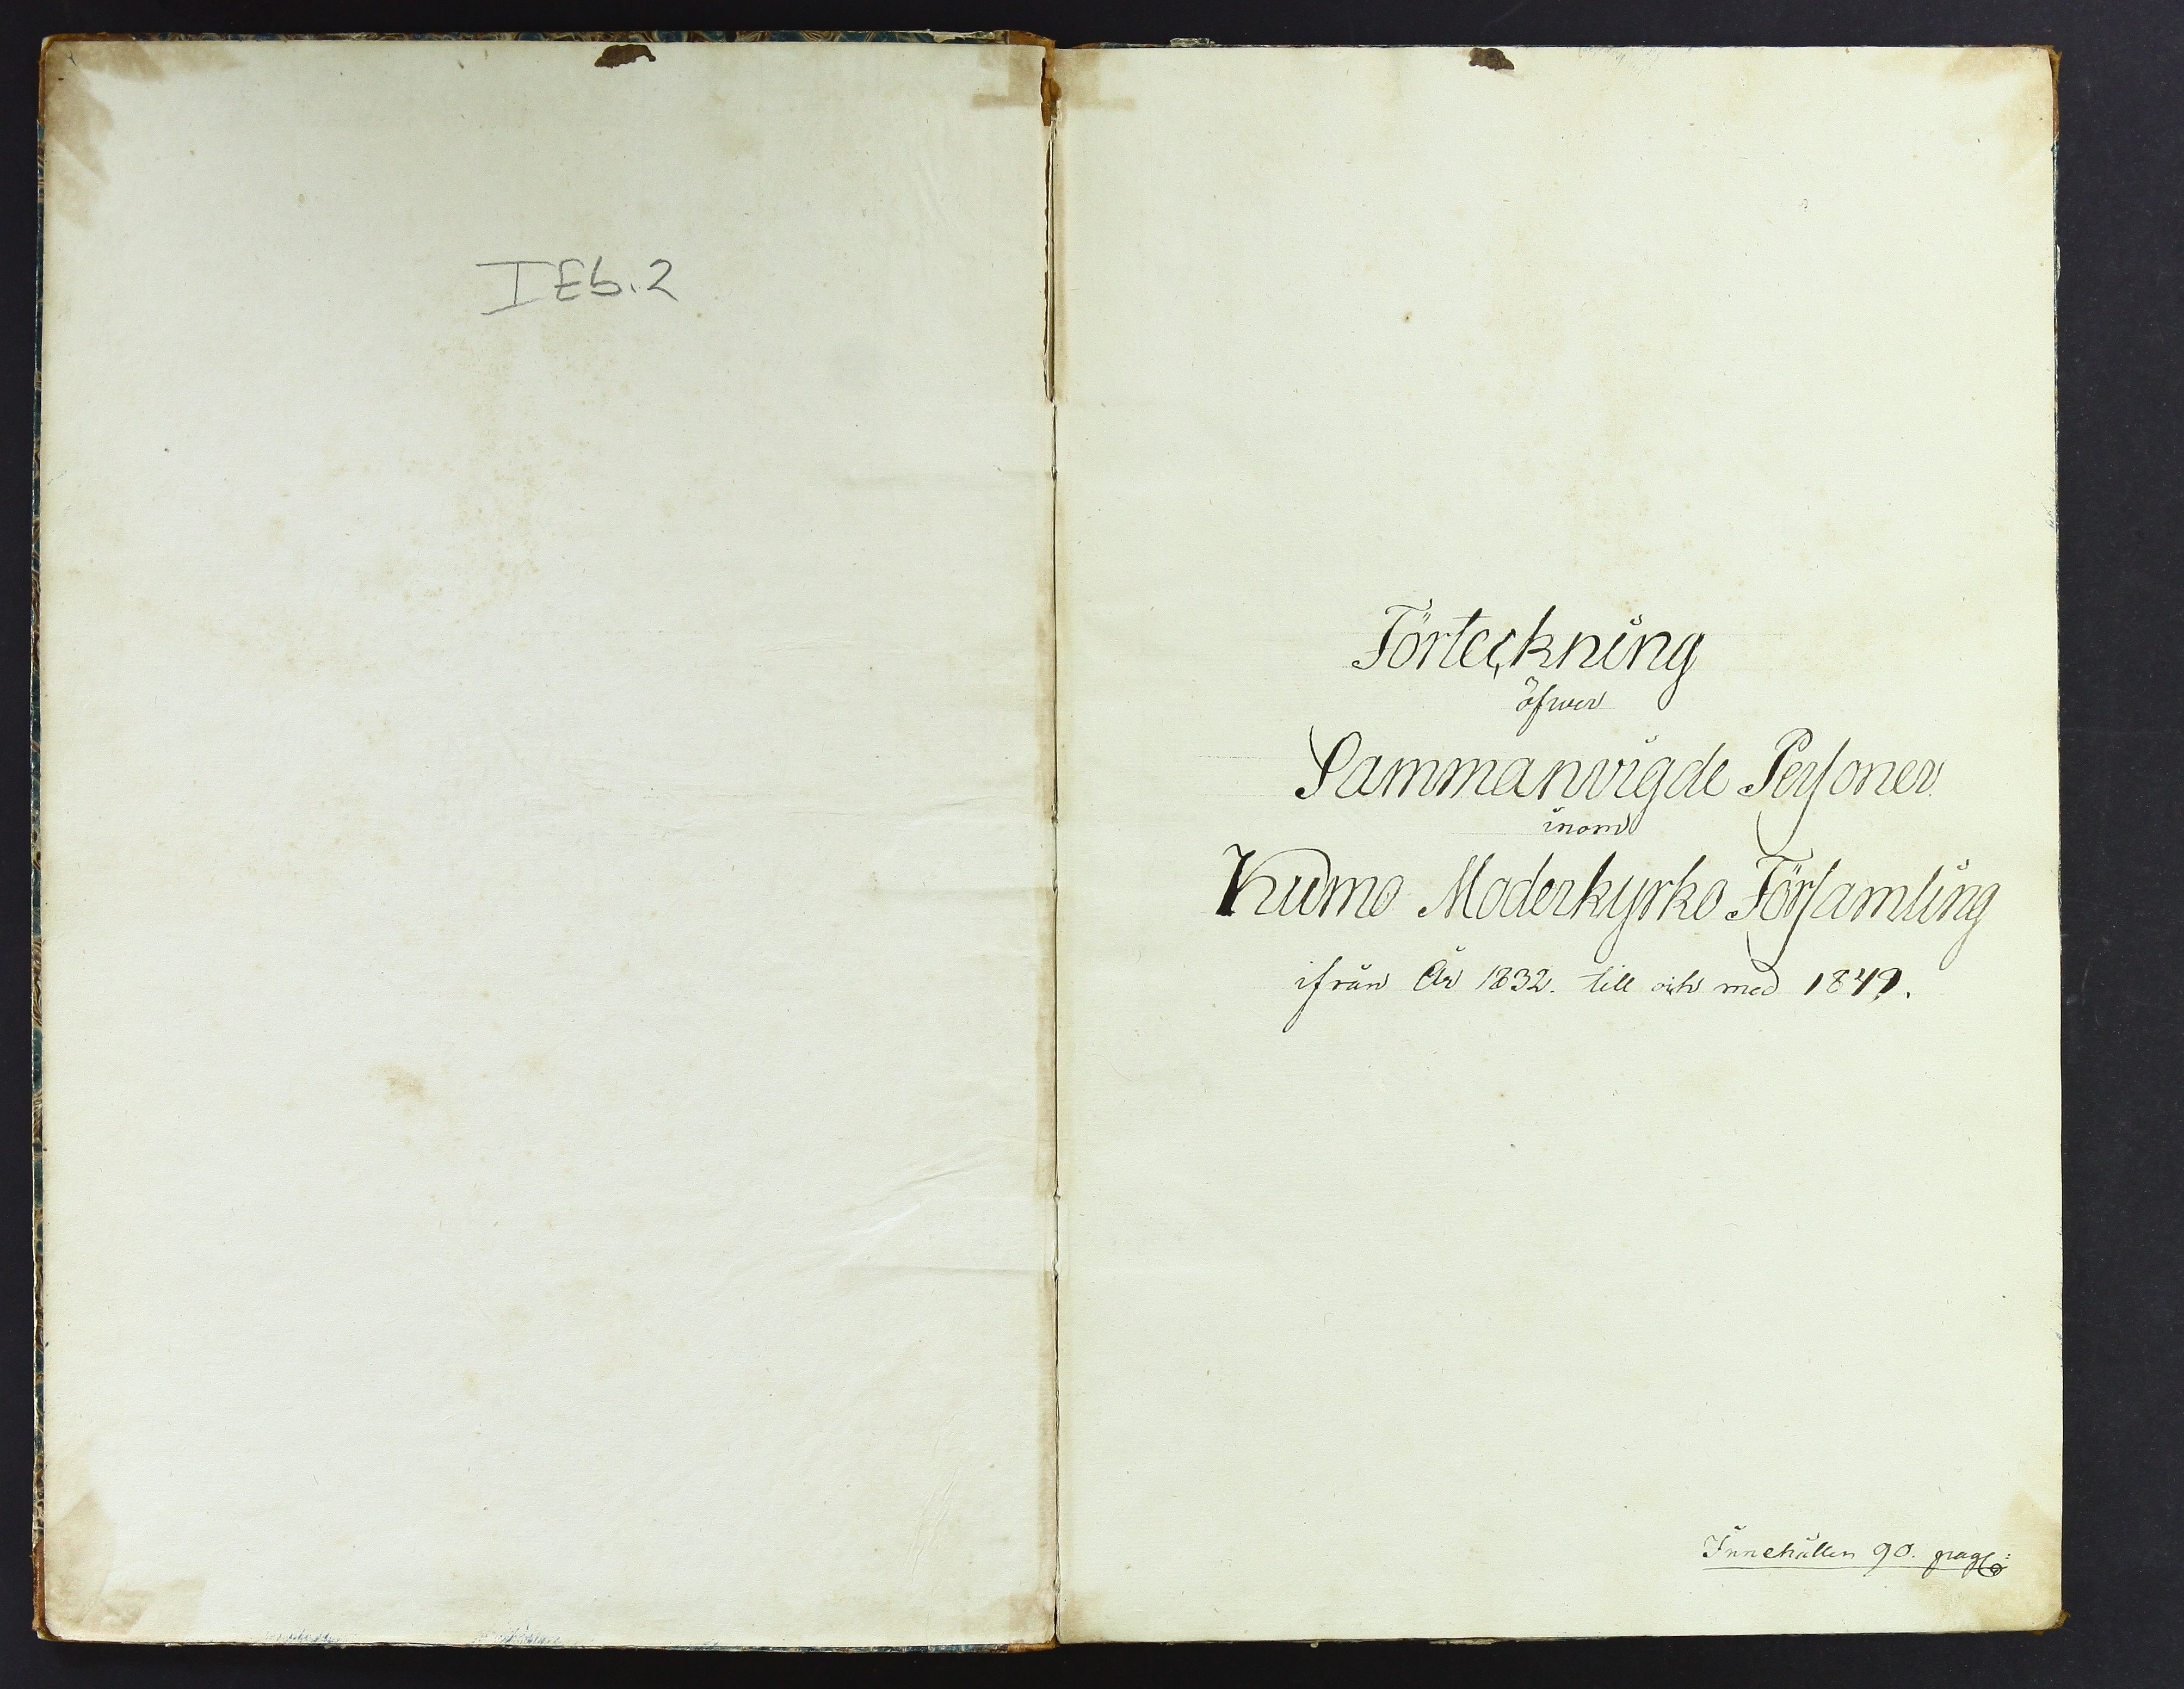 I Eb. 2
Förteckning
öfwer
Sammanvigde Personer
inom
Kumo Moderkyrko Församling
ifrån År 1832. till och med 1849.
Innehåller 90. pag: